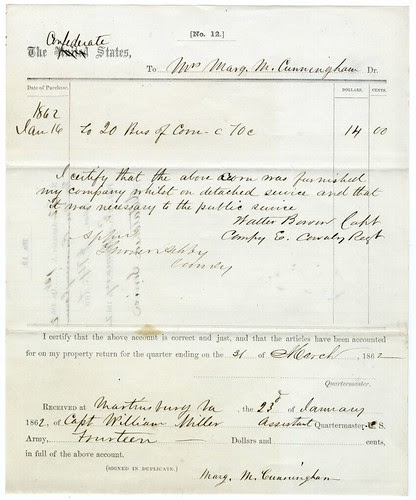 [No. 12.]
Confederate
The United States,
To Mrs Marg. M. Cunningham Dr.
Date of Purchase. DOLLARS. CENTS.
1862
Jan 16 To 20 Bus of Corn - c 70c 14 00
I certify that the above corn was furnished
my company whilst on detached service and that
it was necessary to the public service
Walter Bowen Capt
Compy E. Cavalry Regt
Turner Ashby
I certify that the above account is correct and just, and that the articles have been accounted
for on my property return for the quarter ending on the 31 of March, 1862
Quartermaster.
Received at Martinsburg Va, the 23d of January
1862, of Capt William Miller Assistant Quartermaster C S.
Army, Fourteen Dollars and cents,
in full of the above account.
(SIGNED IN DUPLICATE.)
Marg. M. Cunningham